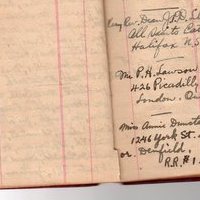 Very Rev. Dean J.P.D. Ll
All Saints Cat
Halifax N.S
Mr P.H. Lawson
426 Piccadilly
London. On
Miss Annie Dunsta
1246 York St.
or Denfield.
R.R.#1.